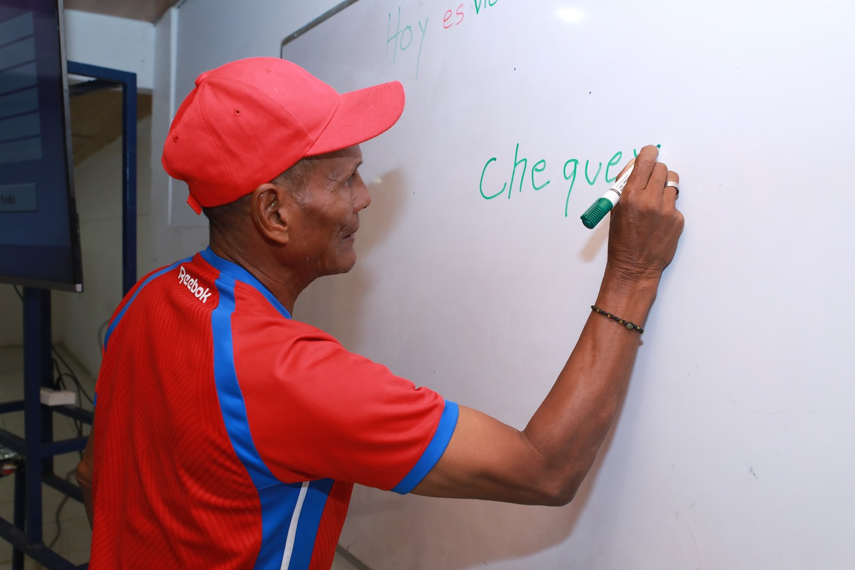 Hoy es
Cheque
Reebok